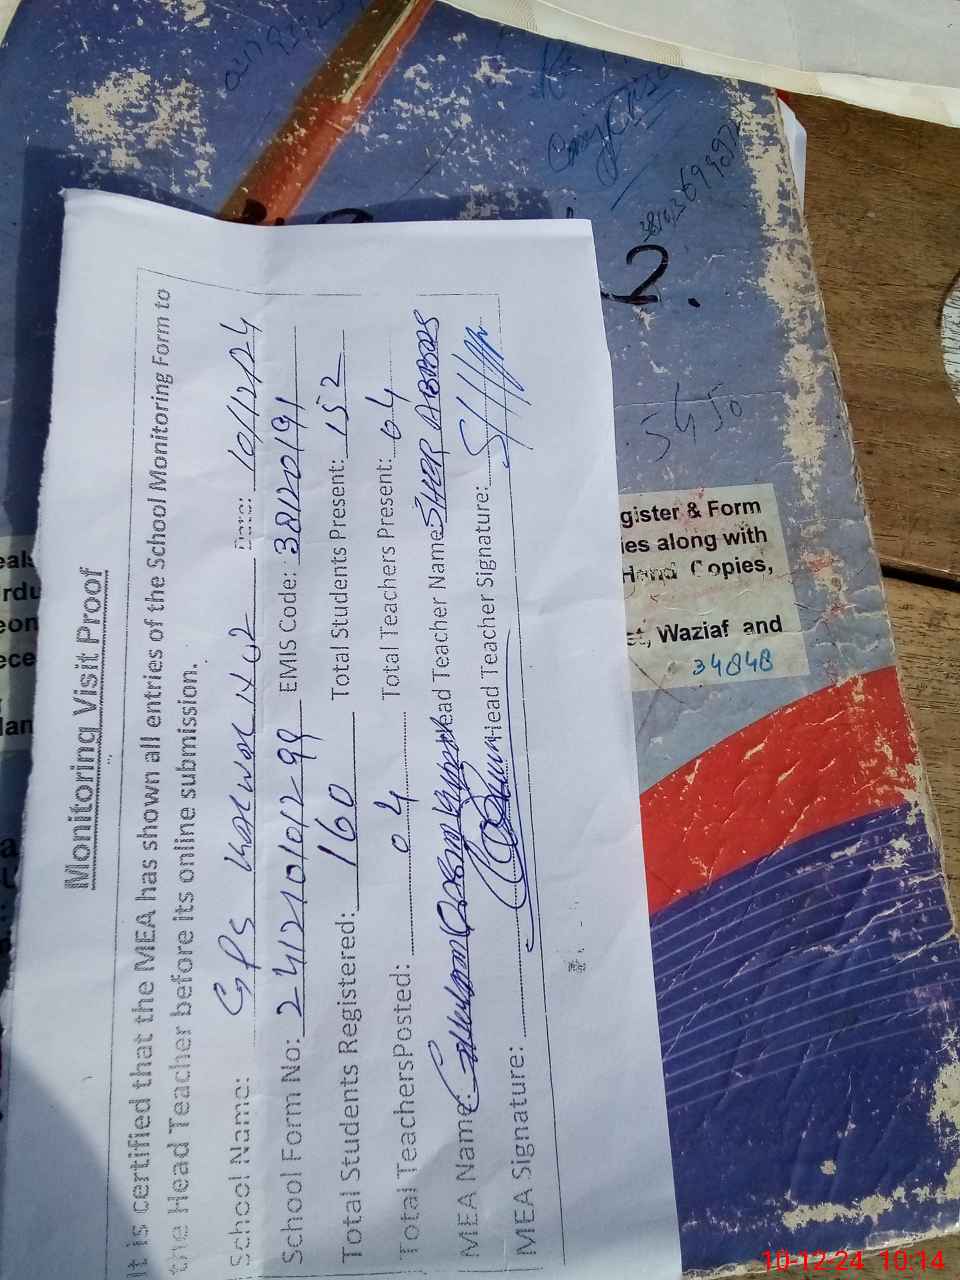 Monitoring Visit Proof
It is certified that the MEA has shown all entries of the School Monitoring Form to
the Head Teacher before its online submission.
School Name: GPS No2 Date: 10/12/24
School Form No: 241210101299 EMIS Code: 38120191
Total Students Registered: 160 Total Students Present: 152
Total TeachersPosted: 04 Total Teachers Present: 04
MEA Name: Head Teacher Name: SHER ABBAS
MEA Signature: Head Teacher Signature:
2.
5450
gister & Form
ies along with
Hand Copies,
st, Waziaf and
34848
10-12-24 10:14